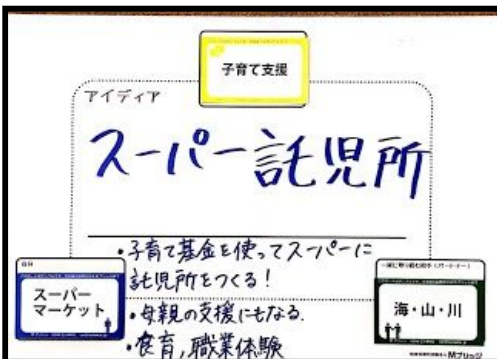 子育て支援
アイディア
スーパー託児所
・子育て基金を使ってスーパーに
託児所をつくる!
・母親の支援にもなる.
・食育,職業体験
自分
スーパー
マーケット
一緒に取り組む相手(パートナー)
海・山・川
Mブリッジ